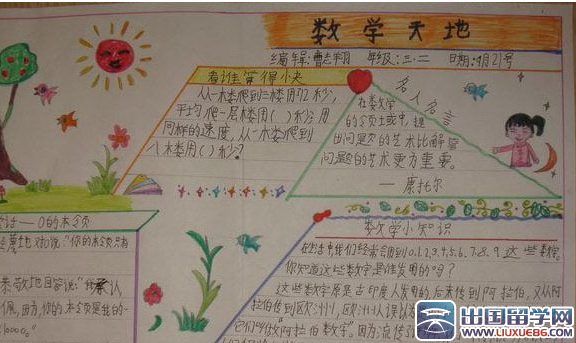 数学天地
编辑:曹志翔 年级:三.二 日期:4月21号
看谁算得小夫
从一楼爬到三楼用12秒,
平均爬一层楼用( )秒?用
同样的速度,从一楼爬到
八楼用( )秒?
名人名言
在数学
的领域中,提
出问题的艺术比解答
问题的艺术更为重要。
——康托尔
——0的本领
地对0说:“你的本领只有
恭敬地回答说:“我承认
佩,因为,你的本领是我的
数学小知识
在生活中,我们经常会用到0.1.2.3.4.5.6.7.8.9这些数字,
你知道这些数字是谁发明的吗?
这些数字原是古印度人发明的,后来传到阿拉伯,又从阿
拉伯传到欧洲,欧洲人误以为
它们叫做“阿拉伯数字”。因为流传
出国留学网
www.liuxue86.com